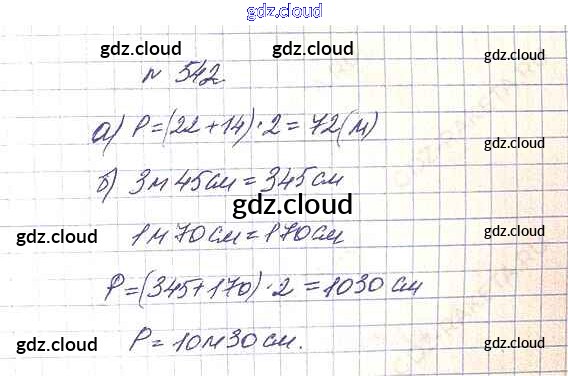 gdz.cloud
gdz.cloud gdz.cloud gdz.cloud
N 542.
а) P=(22+14)·2=72(м)
gdz.cloud
б) 3м 45см=345см
gdz.cloud
gdz.cloud 1м70см=170см gdz.cloud
P=(345+170)·2=1030 см
P=10м30см.
gdz.cloud gdz.cloud gdz.cloud